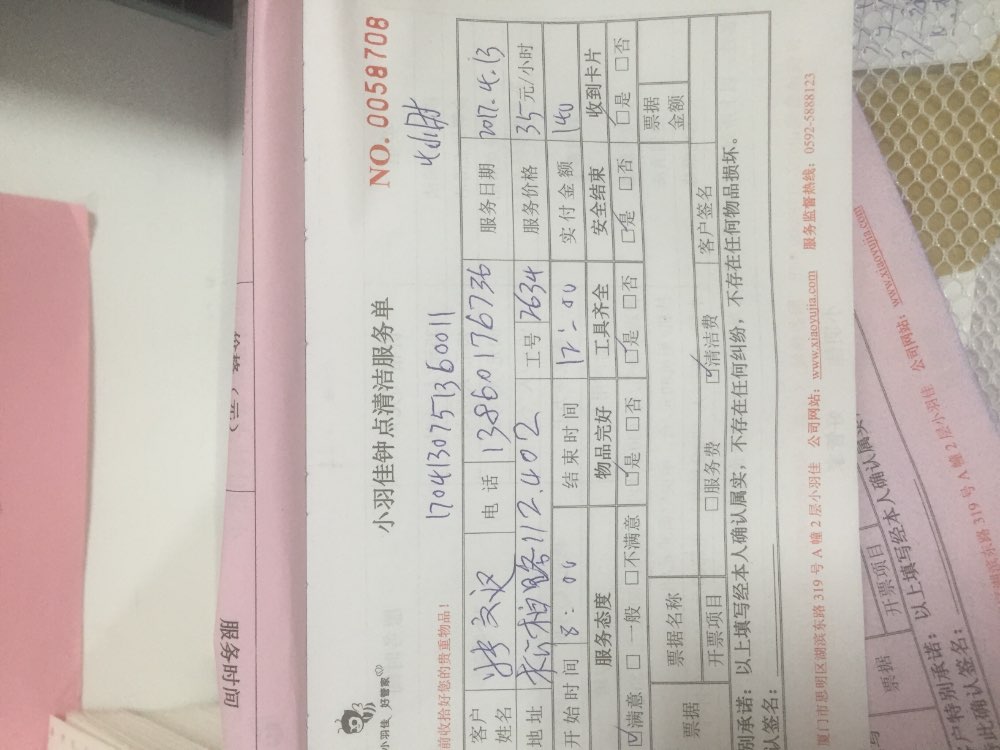 小羽佳钟点清洁服务单
NO. 0058708
小羽佳 好管家
前收拾好您的贵重物品!
1704130751360011
4小时
客户姓名
电话 13860176736
服务日期 2017.4.13
地址
112.402
工号 2634
服务价格 35元/小时
开始时间 8:00
结束时间 12:00
实付金额 140
服务态度 物品完好 工具齐全 安全结束 收到卡片
☑满意 □一般 □不满意 ☑是 □否 ☑是 □否 ☑是 □否 ☑是 □否
票据 票据名称 票据金额
开票项目 □服务费 ☑清洁费 客户签名
别承诺:以上填写经本人确认属实,不存在任何纠纷,不存在任何物品损坏。
认签名:
厦门市思明区湖滨东路319号A幢2层小羽佳 公司网站:www.xiaoyujia.com 服务监督热线:0592-5888123
服务时间
票据
开票项目
户特别承诺:以上填写经本人确认属实
此确认签名:
东路319号A幢2层小羽佳 公司网站:www.xiaoyujia.com